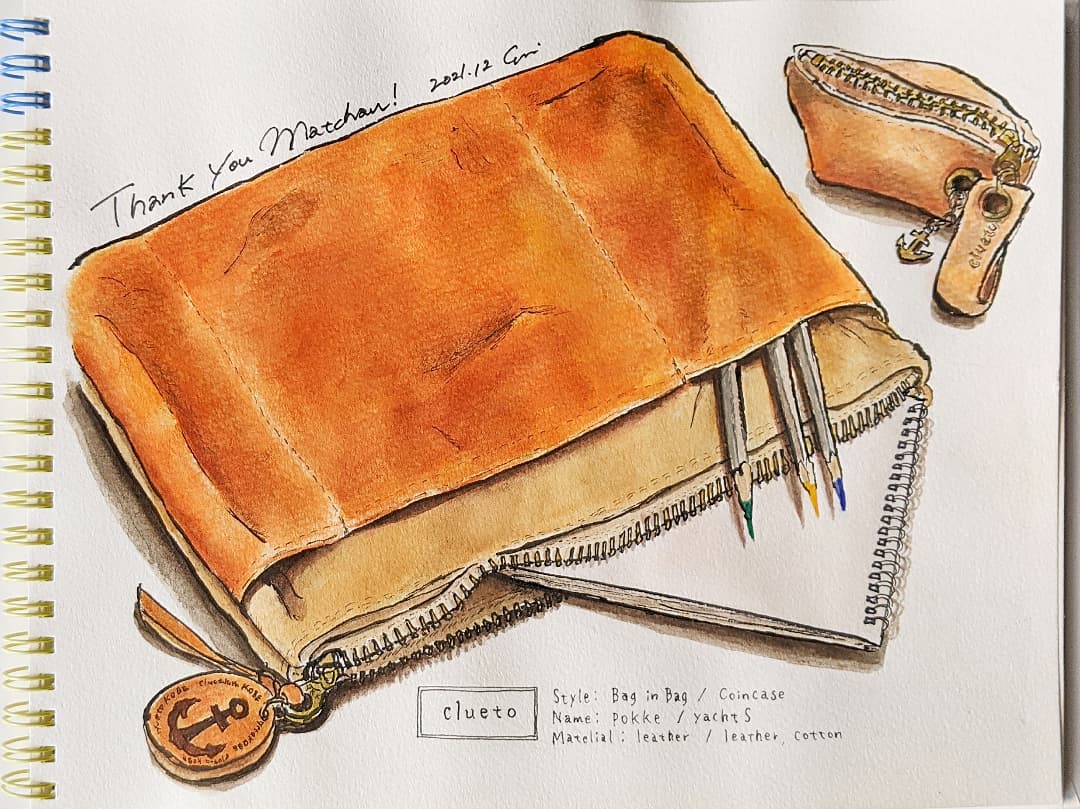 Thank You Matchan! 2021.12
clueto
clueto
Style: Bag in Bag / Coincase
Name: pokke / yacht S
Matelial: leather / leather, cotton
KOBE
KOBE